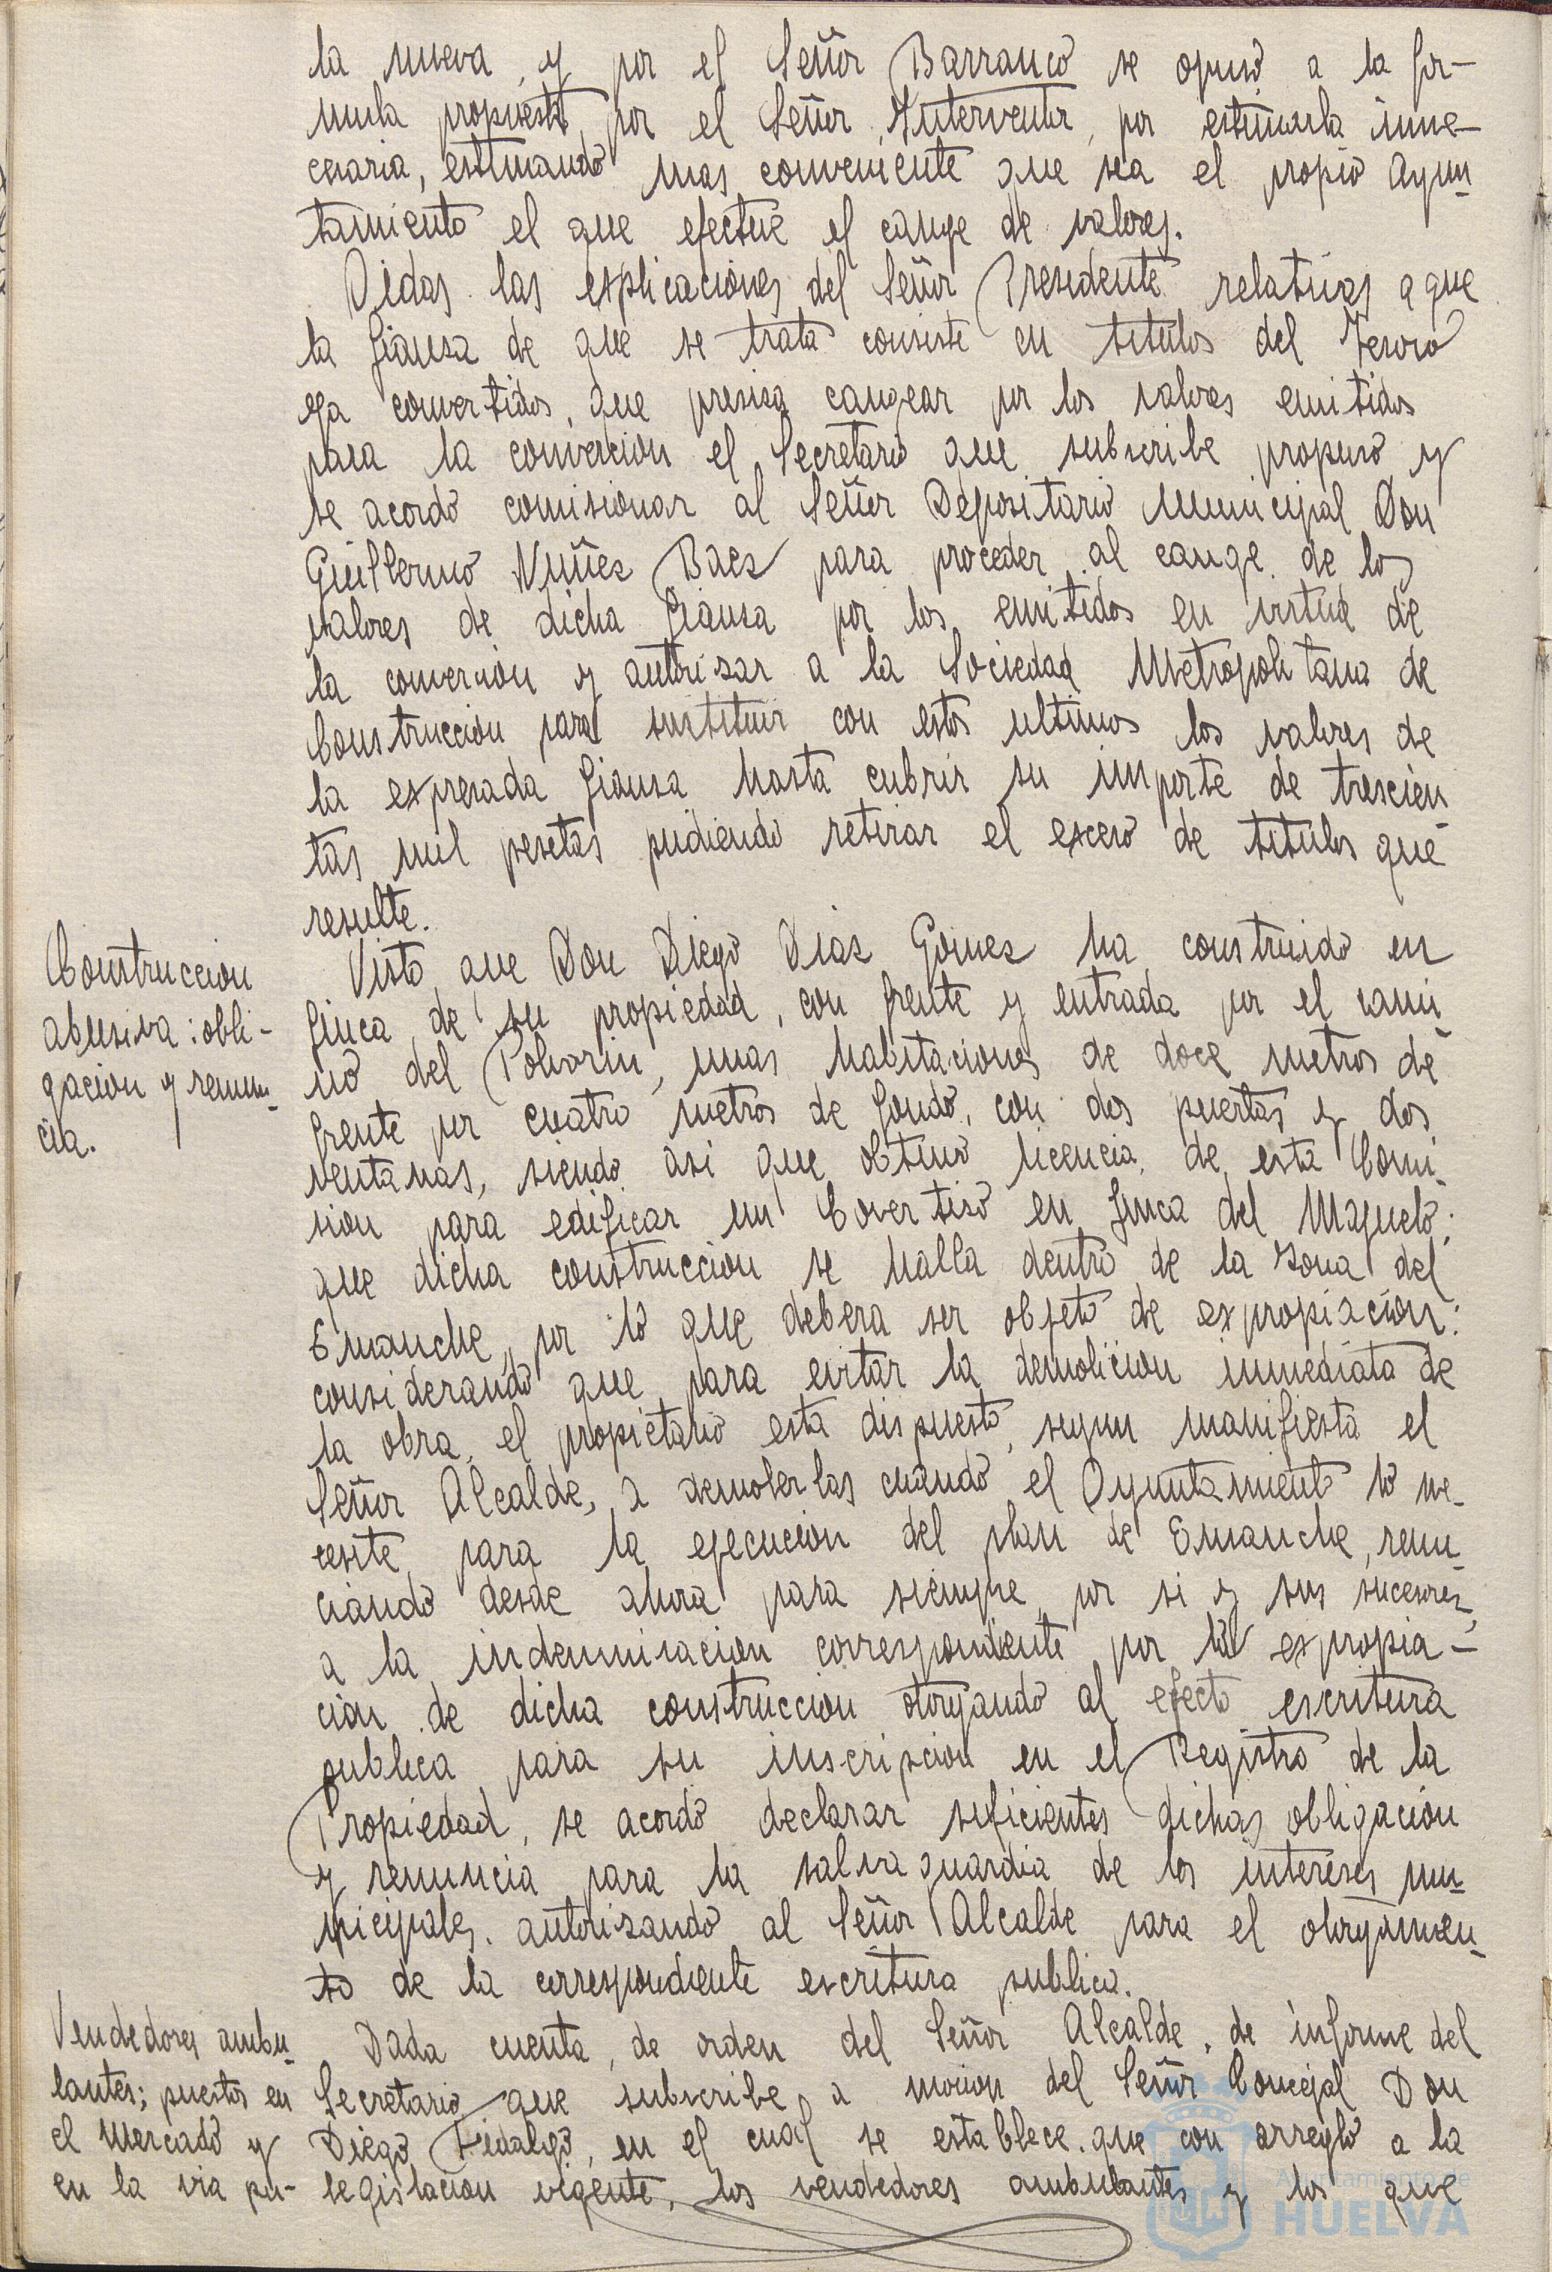 la nueva, y por el Señor Barranco se opuso a la for-
mula propuesta por el Señor Interventor, por estimarla inne-
cesaria, estimando mas conveniente que sea el propio Ayun-
tamiento el que efectue el cange de valores.
Oidas las explicaciones del Señor Presidente relativas a que
la fianza de que se trata consiste en titulos del Tesoro
ya convertidos, que precisa cangear por los valores emitidos
para la convercion el Secretario que subscribe propuso y
se acordo comisionar al Señor Depositario Municipal Don
Guillermo Nuñes Baes para proceder al cange de los
valores de dicha fianza por los emitidos en virtud de
la conversion y autorisar a la Sociedad Metropolitana de
Construccion para sustituir con estos ultimos los valores de
la expresada fianza hasta cubrir su importe de trescien-
tas mil pesetas pudiendo retirar el exceso de titulos que
resulte.
Construccion
abusiva: obli-
gacion y renun-
cia.
Visto que Don Diego Dias Gomes ha construido en
finca de su propiedad, con frente y entrada por el cami-
no del Polvorin, unas habitaciones de doce metros de
frente por cuatro metros de fondo, con dos puertas y dos
ventanas, siendo asi que obtuvo licencia de esta Comi-
sion para edificar un Covertiso en finca del Majuelo;
que dicha construccion se halla dentro de la zona del
Emanche por lo que debera ser objeto de expropiacion:
considerando que para evitar la demolicion inmediata de
la obra, el propietario esta dispuesto, segun manifiesta el
Señor Alcalde, a demolerlas cuando el Ayuntamiento lo ne-
cesite para la ejecucion del plan de Emanche, renun-
ciando desde ahora para siempre por si y sus sucesores,
a la indemnisacion correspondiente por la expropia-
cion de dicha construccion otorgando al efecto escritura
publica para su inscripcion en el Registro de la
Propiedad, se acordo declarar suficientes dichas obligacion
y renuncia para la salvaguardia de los intereses mu-
nicipales, autorisando al Señor Alcalde para el otorgamien-
to de la correspondiente escritura publica.
Vendedores ambu-
lantes; puestos en
el Mercado y
en la via pu-
Dada cuenta, de orden del Señor Alcalde, de informe del
Secretario que subscribe a mocion del Señor Concejal Don
Diego Fidalgo, en el cual se establece que con arreglo a la
legislacion vigente, los vendedores ambulantes y los que
Ayuntamiento de
HUELVA